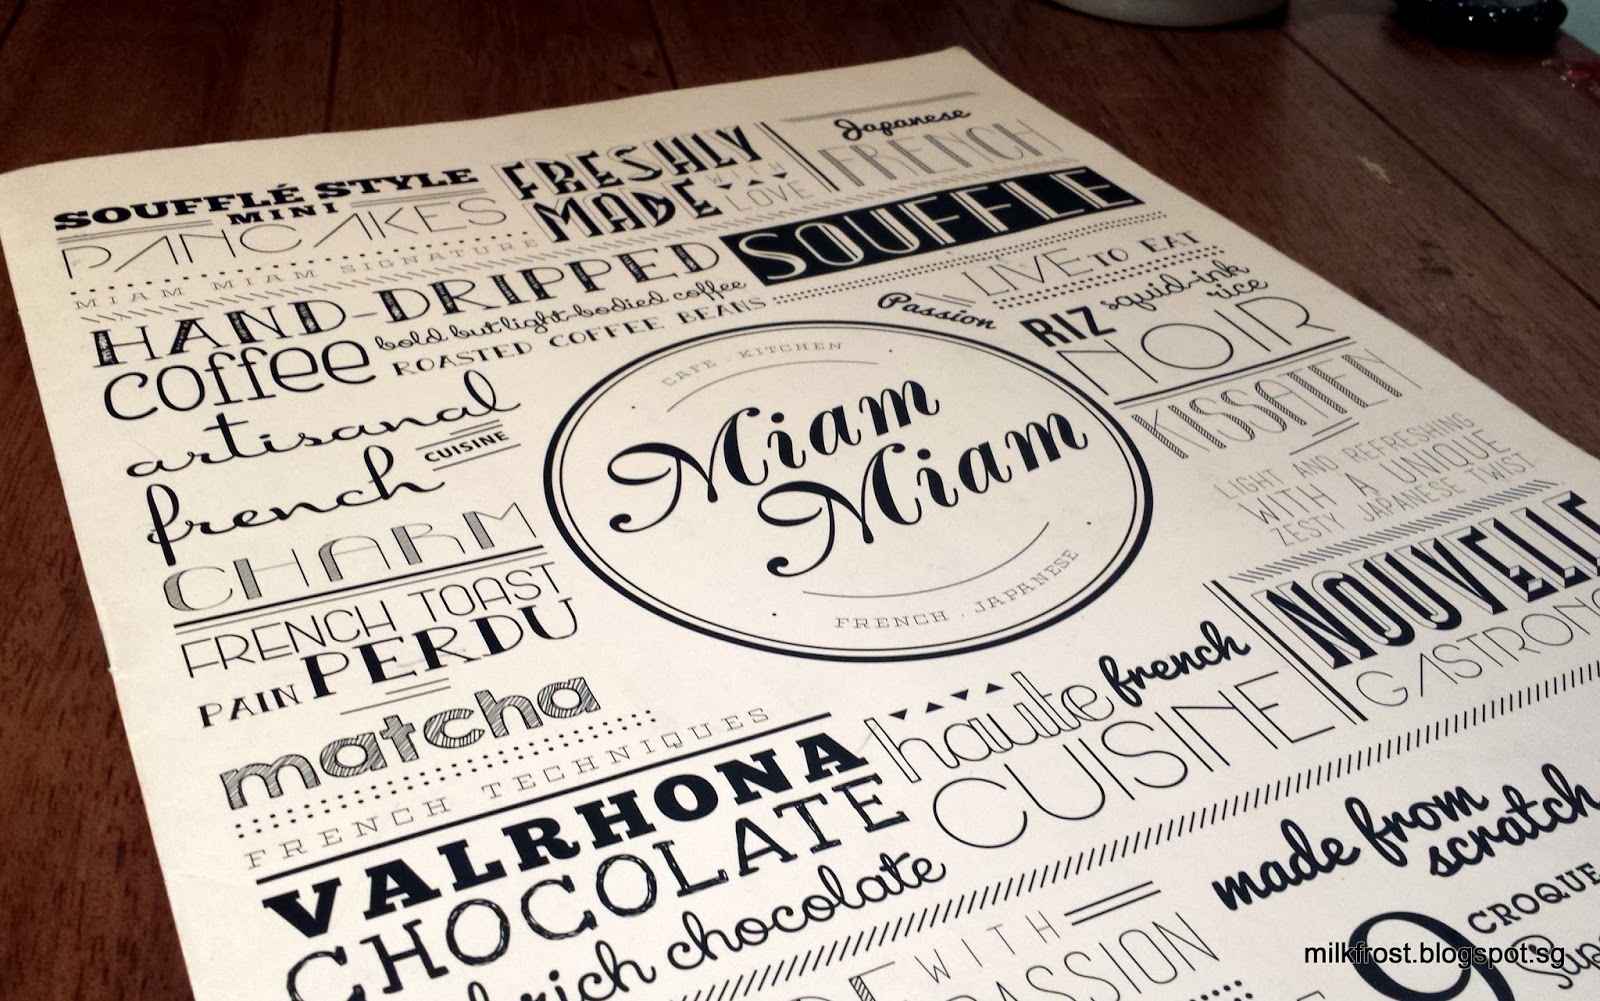 SOUFFLÉ STYLE
MINI
PANCAKES
MIAM MIAM SIGNATURE
FRESHLY
MADE WITH
LOVE
Japanese
FRENCH
SOUFFLE
HAND-DRIPPED
coffee
bold but light-bodied coffee
ROASTED COFFEE BEANS
Passion
LIVE TO EAT
RIZ squid-ink
rice
NOIR
KISSATEN
LIGHT AND REFRESHING
WITH A UNIQUE
ZESTY JAPANESE TWIST-
artisanal
french CUISINE
CHARM
FRENCH TOAST
PAIN PERDU
matcha
FRENCH TECHNIQUES
CAFE . KITCHEN
Miam
Miam
FRENCH . JAPANESE
VALRHONA
CHOCOLATE
rich chocolate
haute french
CUISINE
NOUVELLE
GASTRONO
made from
scratch
WITH
PASSION
CROQUE
milkfrost.blogspot.sg